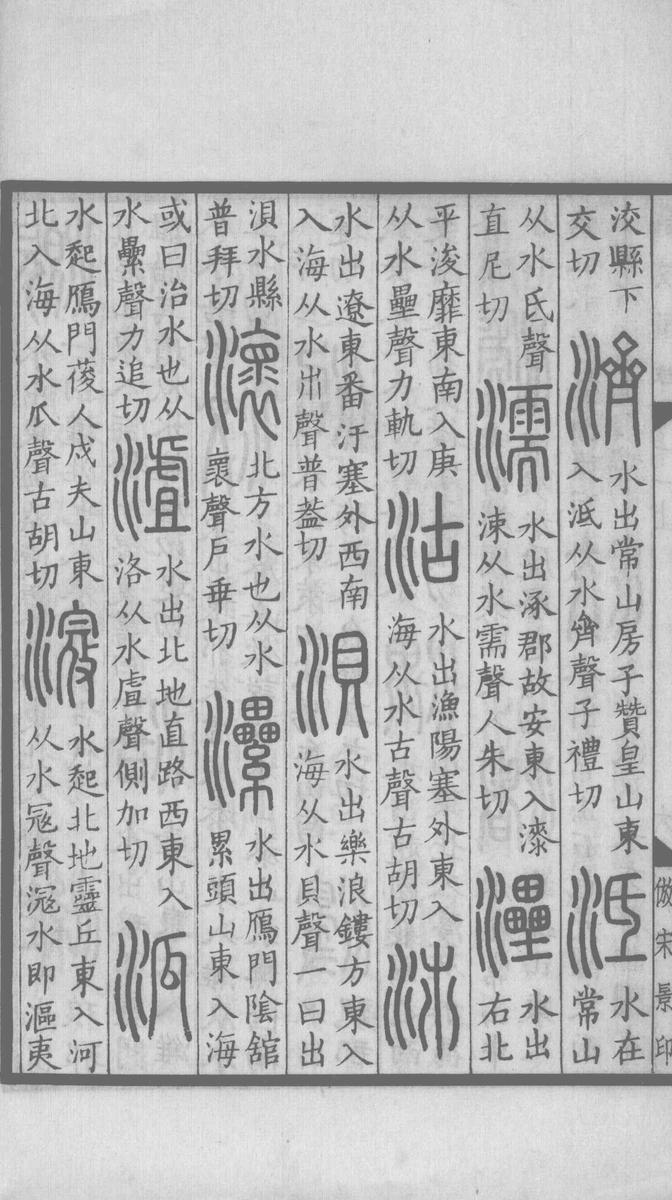 洨縣下
交切
濟
水出常山房子贊皇山東
入泜从水齊聲子禮切
泜
水在
常山
从水氐聲
直尼切
濡
水出涿郡故安東入漆
涑从水需聲人朱切
灅
水出
右北
平浚靡東南入庚
从水壘聲力軌切
沽
水出漁陽塞外東入
海从水古聲古胡切
沛
水出遼東番汗塞外西南
入海从水巿聲普蓋切
浿
水出樂浪鏤方東入
海从水貝聲一曰出
浿水縣
普拜切
瀤
北方水也从水
褱聲戶乖切
灅
水出鴈門陰館
累頭山東入海
或曰治水也从
水纍聲力追切
䖒
水出北地直路西東入
洛从水虘聲側加切
泒
水起鴈門葰人戍夫山東
北入海从水瓜聲古胡切
滱
水起北地靈丘東入河
从水寇聲滱水即漚夷
倣宋景印